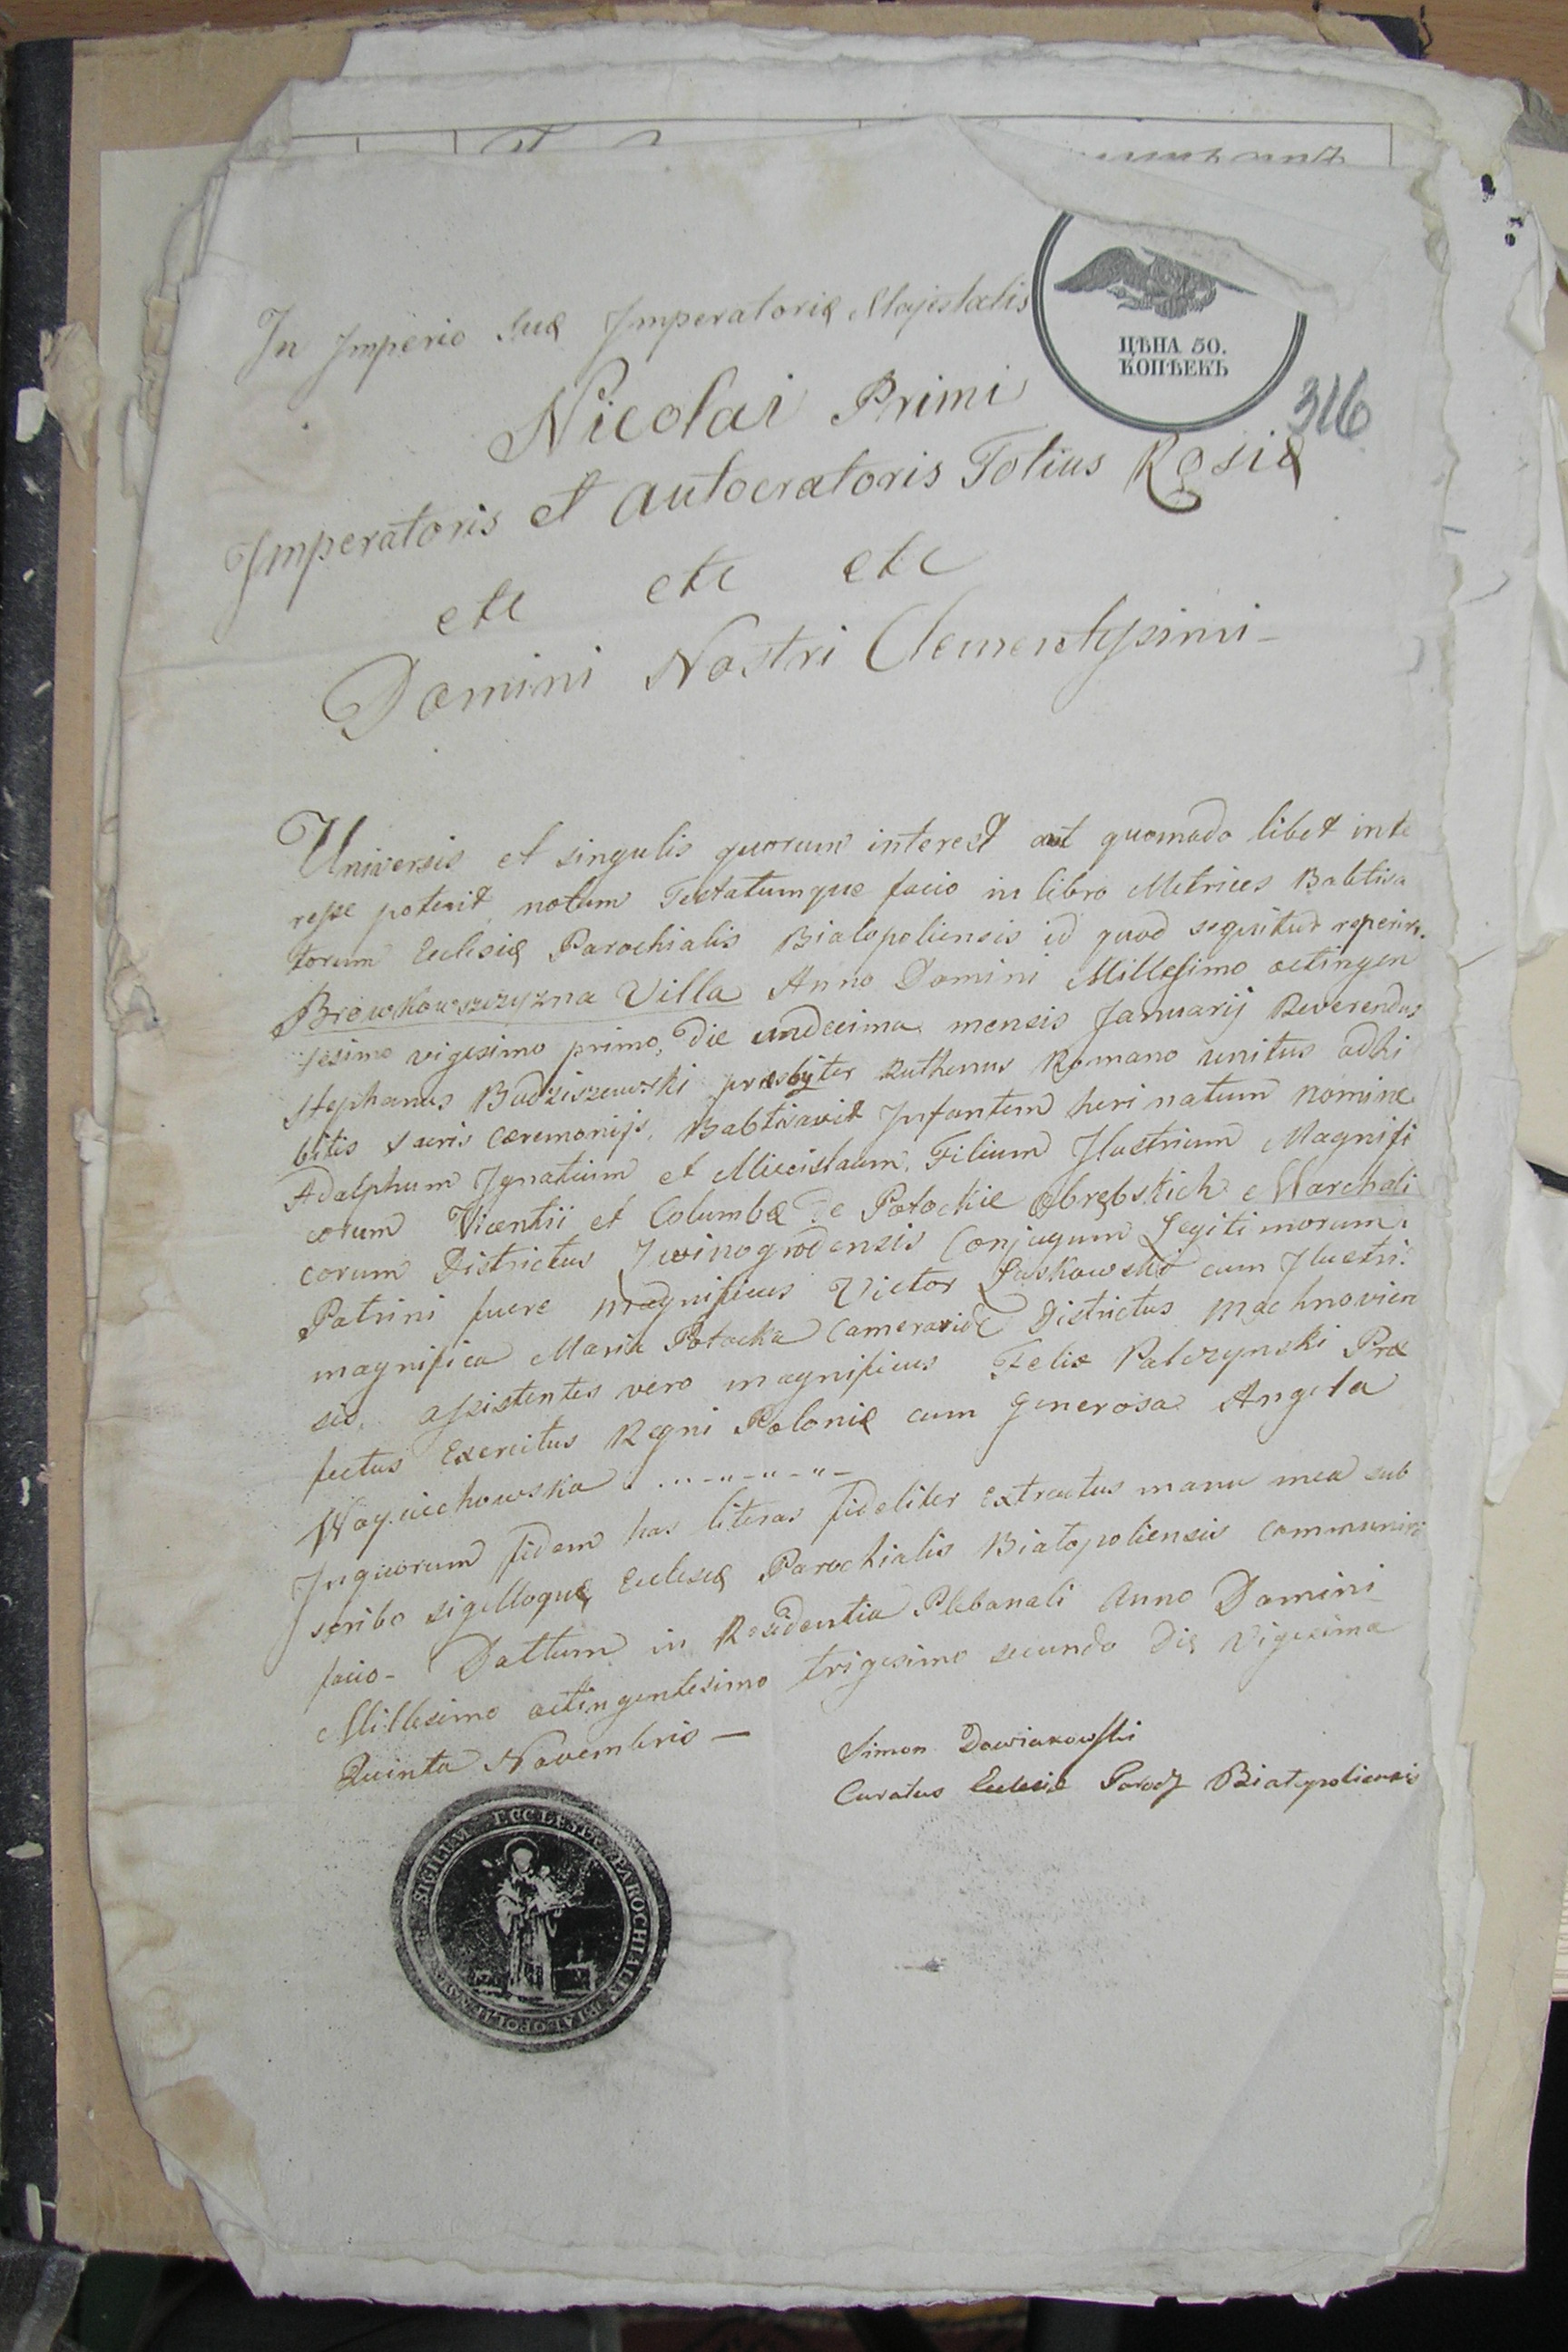 In Imperio Suæ Imperatoriæ Majestatis
ЦѢНА 50.
КОПѢЕКЪ
316
Nicolai Primi
Imperatoris et Autocratoris Totius Rosiæ
etc etc etc
Domini Nostri Clementyssimi
Universis et singulis quorum interest aut quomodo libet inte
resse poterit, notum Testatumque facio in libro Metrices Babtisa
torum Eclesiæ Parochialis Bialopoliensis id quod sequitur reperiri.
Browkowszczyzna Villa Anno Domini Millesimo octingen
tesimo vigesimo primo, die undecima mensis Januarij Reverendus
Stephanus Badziszewski presbyter Ruthenus Romano unitus adhi
bitis sacris cæremonijs, Babtisavit Infantem heri natum nomine
Adolphum Ignatium et Miecislaum, Filium Ilustrium Magnifi
corum Vicentii et Columbæ de Potockie Obrębskich Marchali
corum Districtus Zwinogrodensis Conjugum Legitimorum.
Patrini fuere magnificus Victor Laskowski cum Ilustri.
magnifica Maria Potocka Cameraride Districtus Machnovien
sis. assistentes vero magnificus Felix Palczynski Præ
fectus Exercitus Regni Poloniæ cum Generosa Angela
Woyciechowska
Inquorum fidem has literas fideliter extractus manu mea sub
scribo sigilloque Eclesiæ Parochialis Bialopoliensis communiri
facio - Dattum in Residentia Plebanali Anno Domini
Millesimo octingentesimo trigesimo secundo Die Vigesima
Quinta Novembris —
Simon Dawiakowski
Curatus Eclesiæ Paroch Bialopoliensis
SIGILLUM ECCLESIÆ PAROCHIALIS BIALOPOLIENSIS